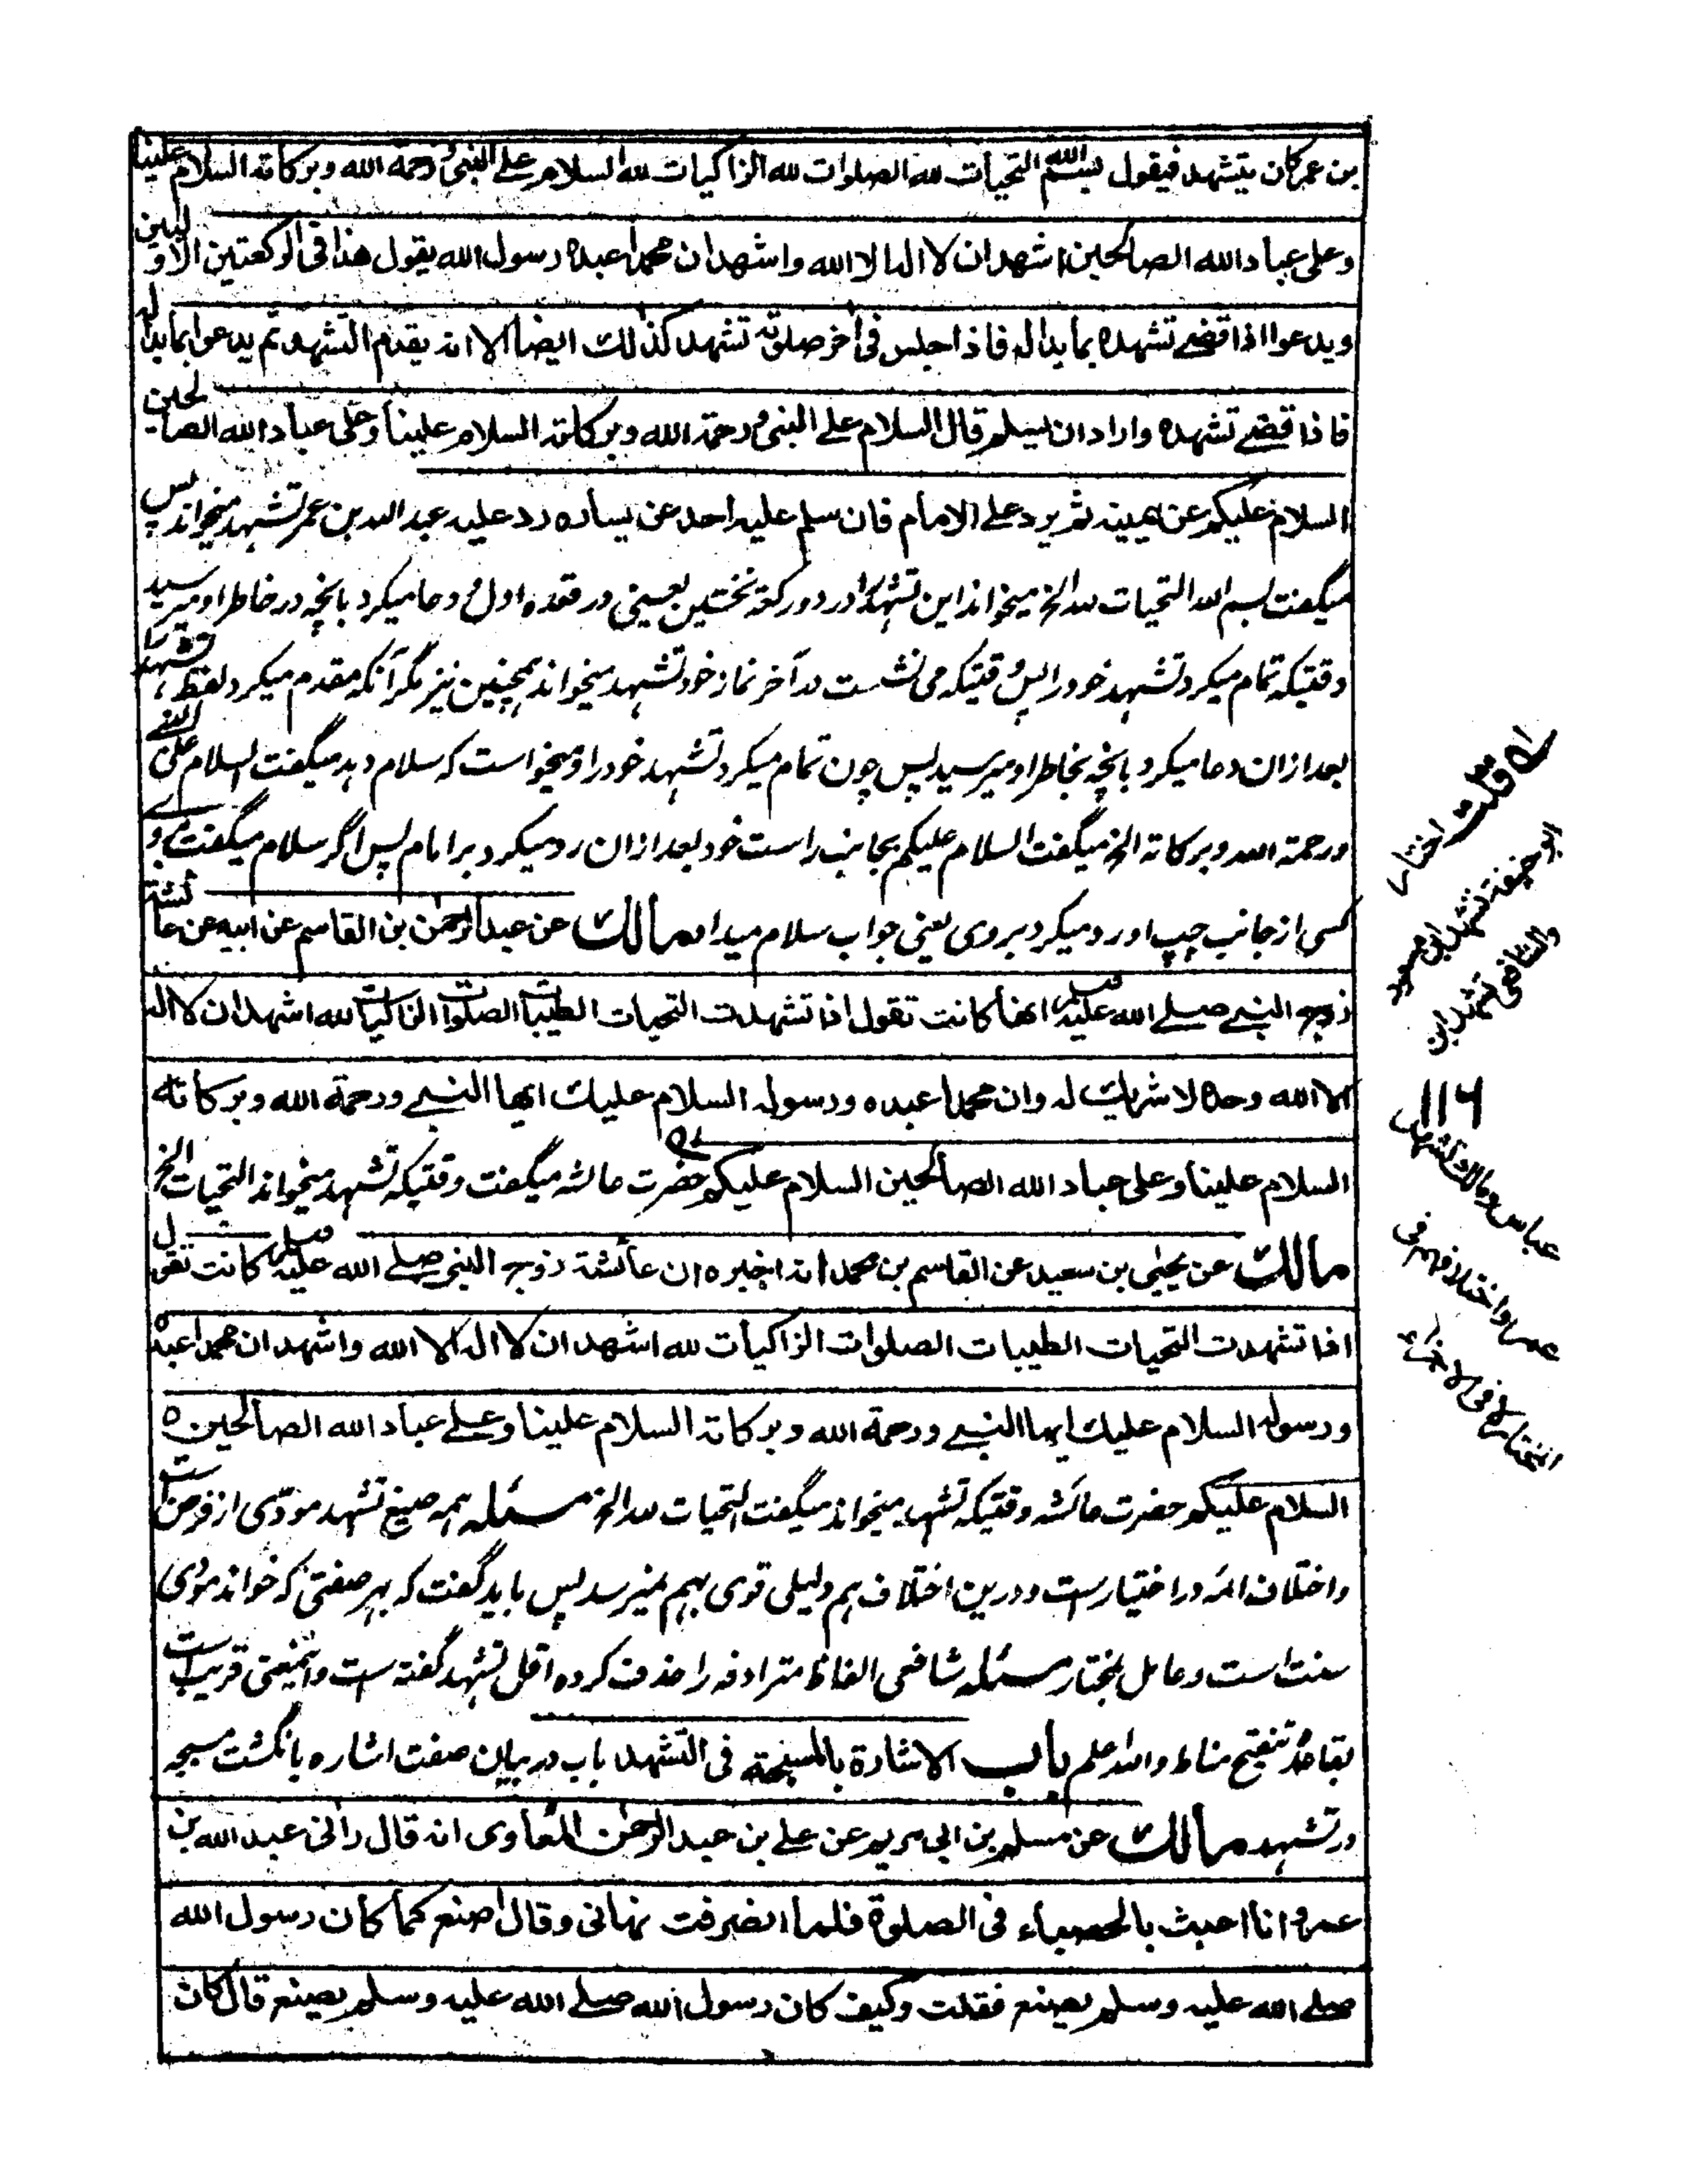 بن عمر كان يتشهد فيقول بسم الله التحيات لله الصلوات لله الزاكيات لله السلام على النبي ورحمة الله وبركاته السلام علينا
وعلى عباد الله الصالحين اشهد ان لا اله الا الله واشهد ان محمدا عبده رسول الله يقول هذا فى الركعتين الاوليين
ويدعوا اذا قضے تشهده بما بدا له فاذا جلس فى اخر صلوته تشهد كذلك ايضا الا انه يقدم التشهد ثم يدعوا بما بدا له
فاذا قضے تشهده واراد ان يسلم قال السلام على النبى ورحمة الله وبركاته السلام علينا وعلى عباد الله الصالحين
السلام عليكم عن يمينه ثم يرد على الامام فان سلم عليه احد عن يساره رد عليه عبد الله بن عمر تشهد میخواند پس
میگفت بسم الله التحیات لله الخ میخواند این تشهد را در دو رکعة نخستین یعنی در قعده اول و دعا میکرد بانچه در خاطر او میرسید
وقتیکه تمام میکرد تشهد خود را پس وقتیکه می نشست در آخر نماز خود تشهد میخواند همچنین نیز مگر آنکه مقدم میکرد لفظ تشهد را
بعد ازان دعا میکرد بانچه بخاطر او میرسید پس چون تمام میکرد تشهد خود را و میخواست که سلام دهد میگفت السلام على النبے
ورحمة الله وبرکاته الخ میگفت السلام علیکم بجانب راست خود بعد ازان رد میکرد بر امام پس اگر سلام میگفت بر وے
کسی از جانب چپ او رد میکرد بروی یعنی جواب سلام میداد مالك عن عبد الرحمن بن القاسم عن ابيه عن عائشة
زوج النبي صلے الله عليه وسلم انها كانت تقول اذا تشهدت التحيات الطيبات الصلوات الزاكيات لله اشهد ان لا اله
الا الله وحده لا شريك له وان محمدا عبده ورسوله السلام عليك ايها النبے ورحمة الله وبركاته
السلام علينا وعلى عباد الله الصالحين السلام عليكم حضرت عائشه میگفت وقتیکه تشهد میخواند التحیات الخ
مالك عن يحيى بن سعيد عن القاسم بن محمد انه اخبره ان عائشة زوج النبى صلے الله عليه وسلم كانت تقول
اذا تشهدت التحيات الطيبات الصلوات الزاكيات لله اشهد ان لا اله الا الله واشهد ان محمدا عبده
ورسوله السلام عليك ايها النبے ورحمة الله وبركاته السلام علينا وعلے عباد الله الصالحين ه
السلام عليكم حضرت عائشه وقتیکه تشهد میخواند میگفت التحیات لله الخ مسئله همه صیغ تشهد مودّی از فرض است
واختلاف ائمه در اختیارست ودرین اختلاف هم دلیلی قوی بهم نمیرسد پس باید گفت که بهر صفتی که خواند مودی
سنت است وعامل بمختار مسئله شافعی الفاظ مترادفه را حذف کرده اقل تشهد گفته ست واینمعنی قریب است
بقاعدهٔ تنقیح مناط والله اعلم باب الاشارة بالمسبحة فى التشهد باب در بیان صفت اشاره بانگشت مسبحه
در تشهد مالك عن مسلم بن ابى مريم عن على بن عبد الرحمن المعاوى انه قال رانى عبد الله بن
عمر وانا اعبث بالحصباء فى الصلوة فلما انصرفت نهانى وقال اصنع كما كان رسول الله
صلے الله عليه وسلم يصنع فقلت وكيف كان رسول الله صلے الله عليه وسلم يصنع قال كان
قلت اختار
ابو حنيفة تشهد ابن مسعود
والشافعى تشهد ابن
۱۱۶
عباس ومالك تشهد
عمر واختلافهم فى